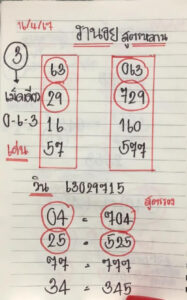 16/4/67
งานงวย สูตรหลาน
3 63 063
เม็ดเดียว 29 729
0-6-3 16 160
เด่น 57 577
วิน 63029715
สูตรรวง
04 = 704
25 = 525
77 = 777
34 = 345